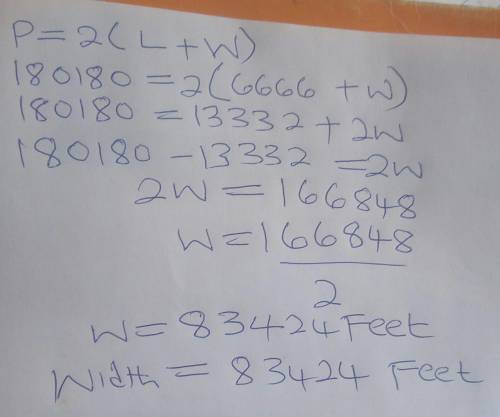 P = 2( L + W)
180180 = 2(6666 + W)
180180 = 13332 + 2W
180180 - 13332 = 2W
2W = 166848
W = 166848
2
W = 83424 Feet
Width = 83424 Feet